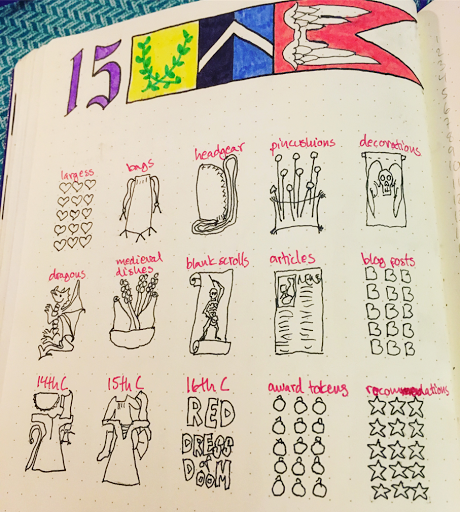 15
largess
bags
headgear
pincushions
decorations
dragons
medieval
dishes
blank scrolls
articles
NEWS
blog posts
B B B
B B B
B B B
B B B
B B B
14th C
15th C
16th C
RED
DRESS
DÖÖM
award tokens
recommendations